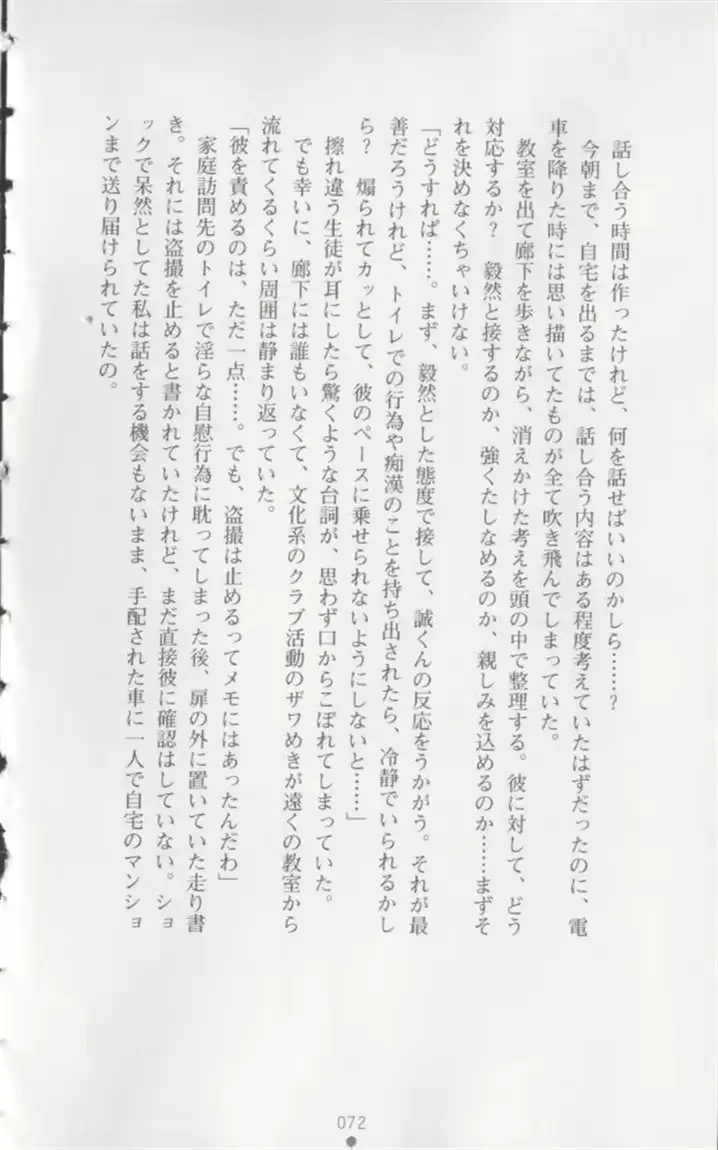 話し合う時間は作ったけれど、何を話せばいいのかしら……？
今朝まで、自宅を出るまでは、話し合う内容はある程度考えていたはずだったのに、電
車を降りた時には思い描いてたものが全て吹き飛んでしまっていた。
教室を出て廊下を歩きながら、消えかけた考えを頭の中で整理する。彼に対して、どう
対応するか？　毅然と接するのか、強くたしなめるのか、親しみを込めるのか……まずそ
れを決めなくちゃいけない。
「どうすれば……。まず、毅然とした態度で接して、誠くんの反応をうかがう。それが最
善だろうけれど、トイレでの行為や痴漢のことを持ち出されたら、冷静でいられるかし
ら？　煽られてカッとして、彼のペースに乗せられないようにしないと……」
擦れ違う生徒が耳にしたら驚くような台詞が、思わず口からこぼれてしまっていた。
でも幸いに、廊下には誰もいなくて、文化系のクラブ活動のザワめきが遠くの教室から
流れてくるくらい周囲は静まり返っていた。
「彼を責めるのは、ただ一点……。でも、盗撮は止めるってメモにはあったんだわ」
家庭訪問先のトイレで淫らな自慰行為に耽ってしまった後、扉の外に置いていた走り書
き。それには盗撮を止めると書かれていたけれど、まだ直接彼に確認はしていない。ショ
ックで呆然としてた私は話をする機会もないまま、手配された車に一人で自宅のマンショ
ンまで送り届けられていたの。
072